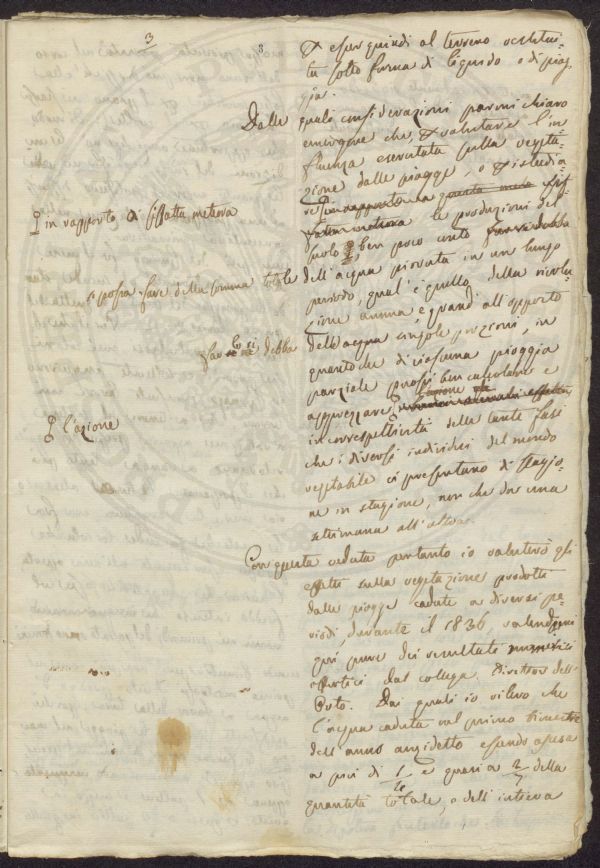 3
8
e esser quindi al terreno restitui-
to sotto forma di liquido o di piog-
gia.
Dalle quali considerazioni parmi chiaro
emergere che, a valutare l'in
fluenza esercitata sulla vegeta-
zione dalle piogge, o a istudia-
re in rapporto a questa mete
in rapporto a siffatta meteora
le produzioni del
suolo, ben poco conto
si possa fare della somma totale
dell'acqua piovuta in un lungo
periodo, qual'è quello della rivolu-
zione annua, e grandi all'opposto
far lo si debba
dell'acqua singole porzioni, in
quantochè di ciascuna pioggia
parziale puossi ben calcolare e
apprezzare
l'azione
in correspettività delle tante fasi
che i diversi individui del mondo
vegetabile ci presentano di stagio-
ne in stagione, non che da una
settimana all'altra.
Con questa veduta pertanto io valuterò gli
effetti sulla vegetazione prodotti
dalle piogge cadute a diversi pe-
riodi durante il 1836, valendomi
qui pure dei resultati numerici
offertici dal collega Direttore dell'
Orto. Dai quali io rilevo che
l'acqua caduta nel primo trimestre
dell'anno anzidetto essendo ascesa
a più di 1/4 e quasi a 2/7 della
quantità totale, o dell'intiera